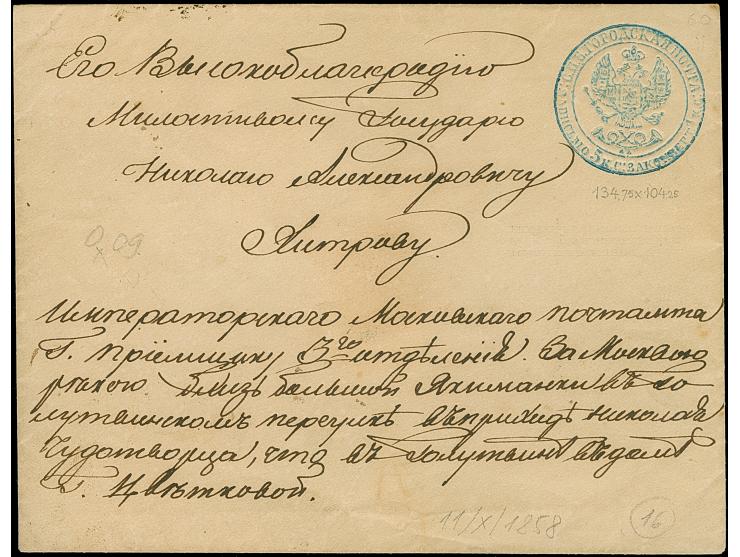 Его Высокоблагородію
Милостивому Государю
Николаю Александровичу
Хитрову.
Императорскаго Московскаго почтамта
Г. пріемщику 3го отдѣленія. За Москвою
рѣкою близь большой Якиманки въ Го
лутвинскомъ переулкѣ въ приходѣ Николая
Чудотворца, что въ Голутвинѣ въ домѣ
Г. Цвѣтковой.
ГОРОДСКАЯ ПОЧТА 5 К.
5 К. С. ЗА К.
134,75 x 104,25
0,09
11/X/1858
16
60